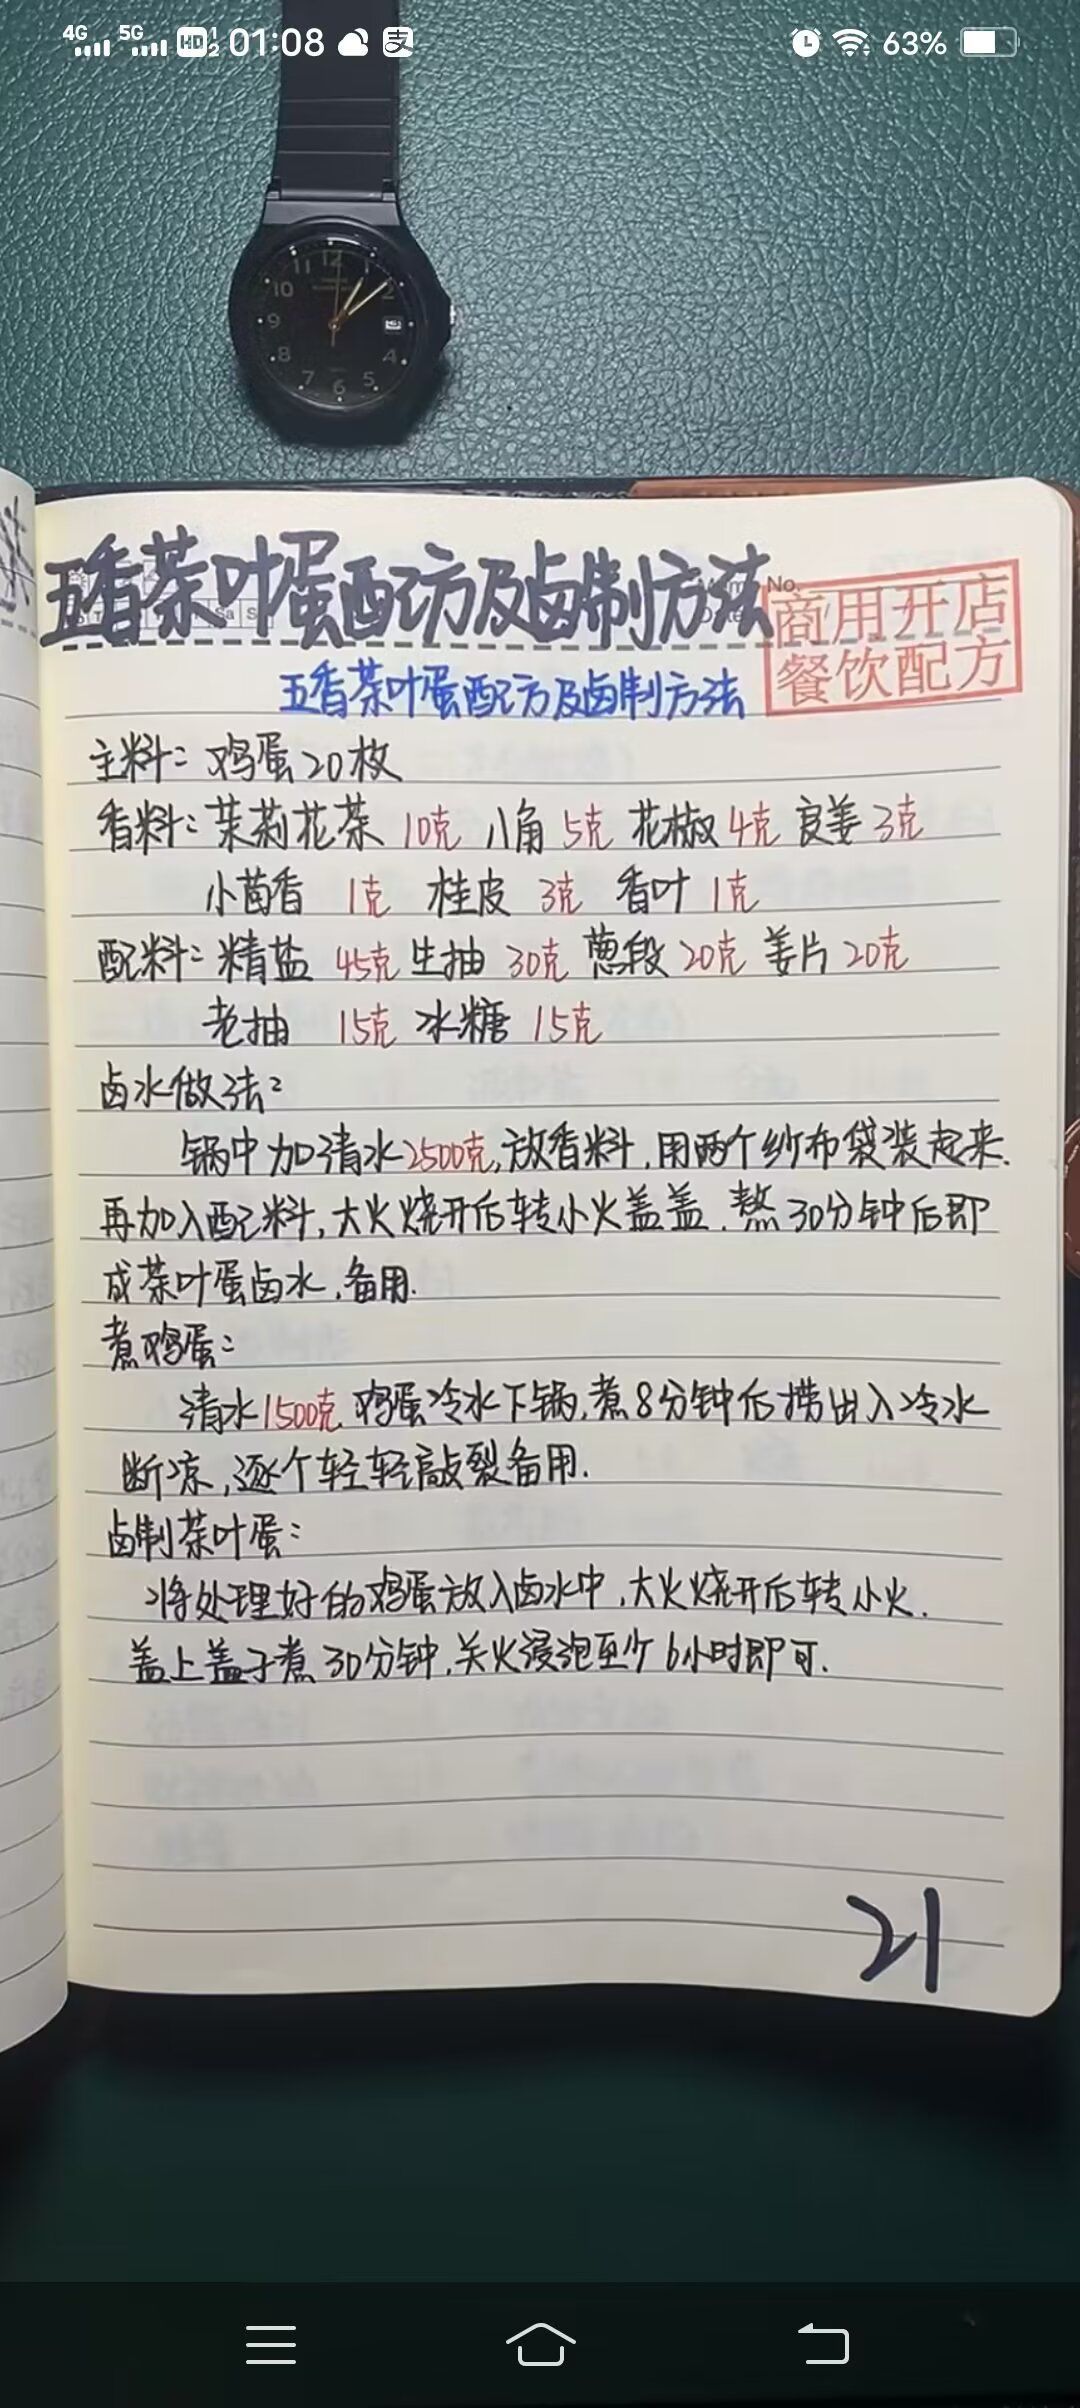 4G 5G HD 1 2 01:08 支 63%
12 1 2 4 5 6 7 8 9 10 11
五香茶叶蛋配方及卤制方法
No.
Sa S
商用开店
餐饮配方
五香茶叶蛋配方及卤制方法
主料：鸡蛋20枚
香料：茉莉花茶 10克 八角 5克 花椒 4克 良姜 3克
小茴香 1克 桂皮 3克 香叶 1克
配料：精盐 45克 生抽 30克 葱段 20克 姜片 20克
老抽 15克 冰糖 15克
卤水做法：
锅中加清水2500克,放香料,用两个纱布袋装起来.
再加入配料,大火烧开后转小火盖盖,熬30分钟后即
成茶叶蛋卤水,备用.
煮鸡蛋：
清水1500克 鸡蛋冷水下锅,煮8分钟后捞出入冷水
断凉,逐个轻轻敲裂备用.
卤制茶叶蛋：
将处理好的鸡蛋放入卤水中,大火烧开后转小火.
盖上盖子煮30分钟,关火浸泡至少6小时即可.
21